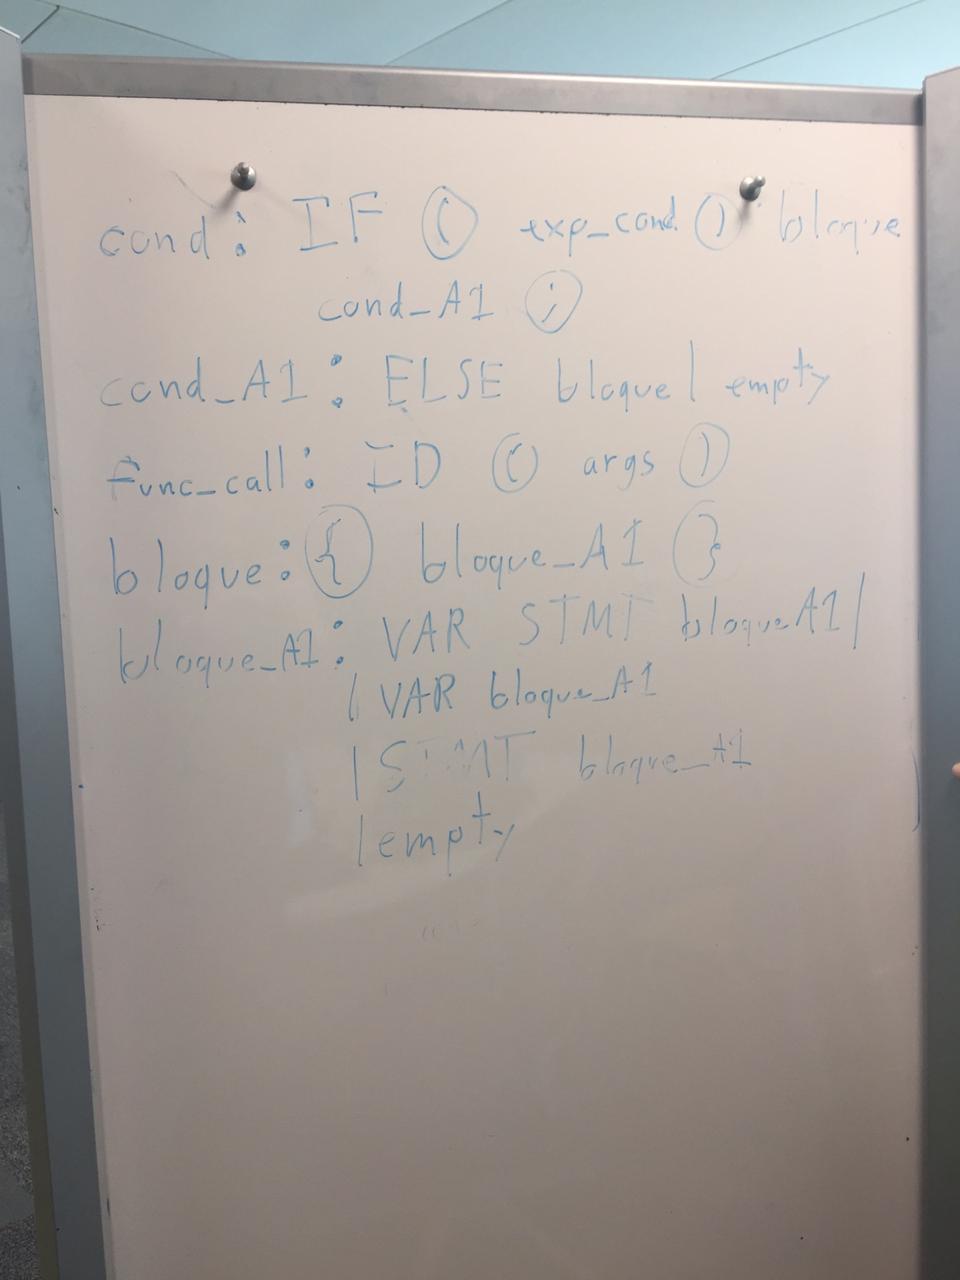 cond: IF ( exp_cond ) bloque
cond_A1 ;
cond_A1: ELSE bloque | empty
func_call: ID ( args )
bloque: { bloque_A1 }
bloque_A1: VAR STMT bloqueA1 |
| VAR bloque_A1
| STMT bloque_A1
| empty